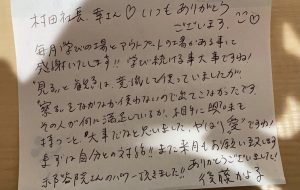 村田社長、幸さん♡いつもありがとう
ございます。♡
毎月学びの場とアウトプットの場がある事に
感謝いたします!! 学び続ける事大事ですね!
"見る"と"観る"は、意識して使っていましたが
"察る"をなかなか使わないので出てこなかったです。
その人が何に満足しているか、相手に興味を
持つこと、大事だなと思いました。やはり"愛"ですね!
まずは自分との対話!! また来月もお願い致します
さんのパワー頂きました!! ありがとうございました!
後藤